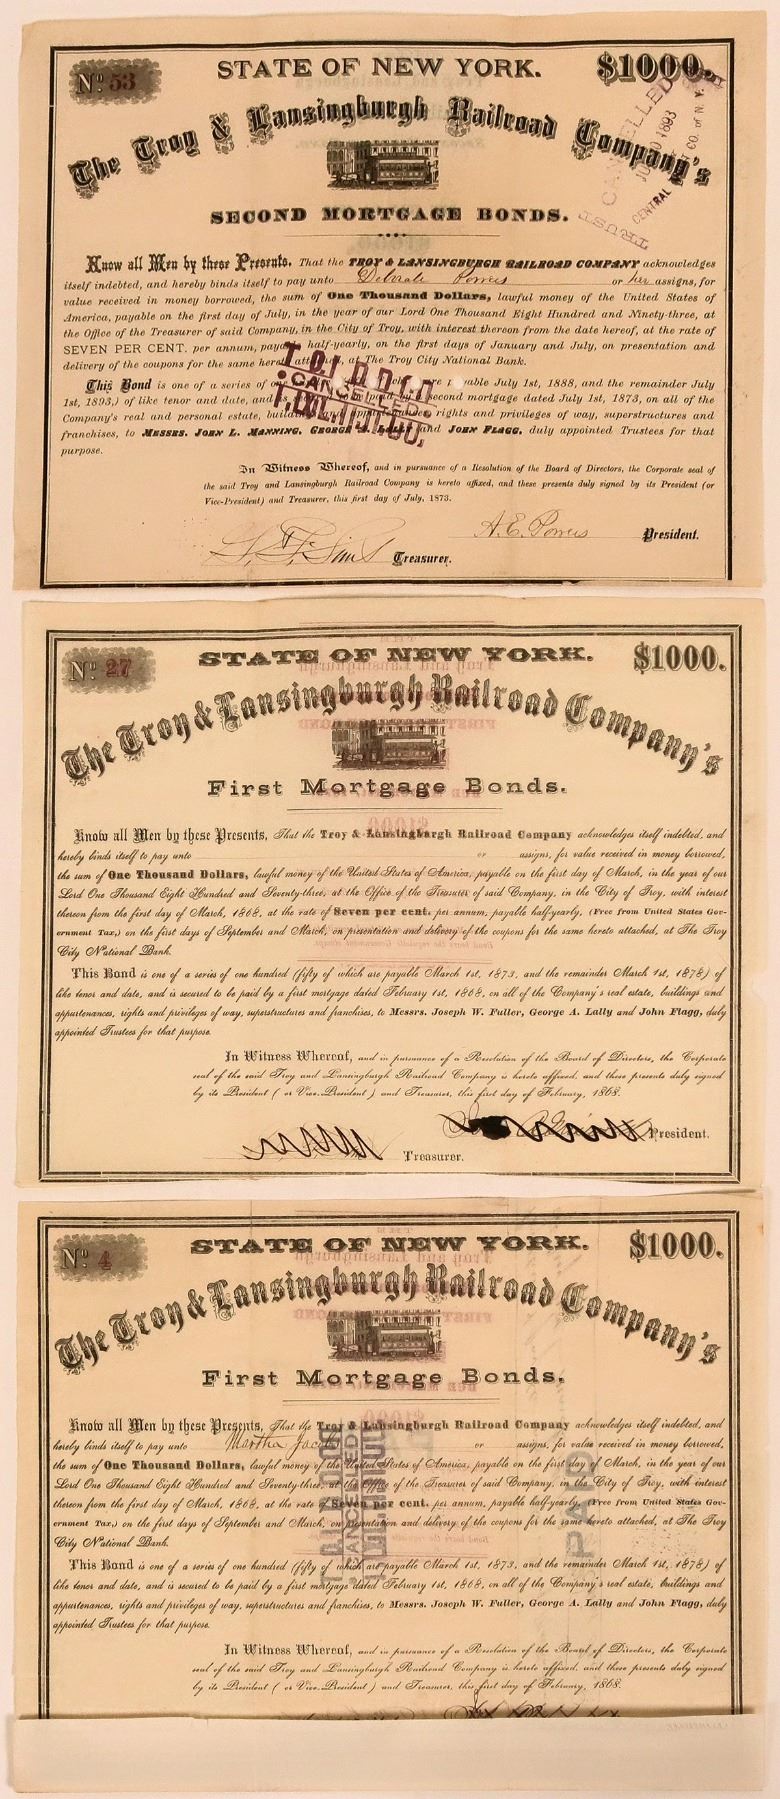 No 53
STATE OF NEW YORK.
$1000.
The Troy & Lansingburgh Railroad Company's
SECOND MORTGAGE BONDS.
CANCELLED
TRUST
1893
CENTRAL
CO. of N.Y.
Know all Men by these Presents, That the TROY & LANSINGBURGH RAILROAD COMPANY acknowledges
itself indebted, and hereby binds itself to pay unto Deborah Powers or her assigns, for
value received in money borrowed, the sum of One Thousand Dollars, lawful money of the United States of
America, payable on the first day of July, in the year of our Lord One Thousand Eight Hundred and Ninety-three, at
the Office of the Treasurer of said Company, in the City of Troy, with interest thereon from the date hereof, at the rate of
SEVEN PER CENT. per annum, payable half-yearly, on the first days of January and July, on presentation and
delivery of the coupons for the same hereto attached, at The Troy City National Bank.
This Bond is one of a series of payable July 1st, 1888, and the remainder July
1st, 1893,) of like tenor and date, and is second mortgage dated July 1st, 1873, on all of the
Company's real and personal estate, buildings appurtenances, rights and privileges of way, superstructures and
franchises, to MESSRS. JOHN L. MANNING, GEORGE A. LALLY and JOHN FLAGG, duly appointed Trustees for that
purpose.
In Witness Whereof, and in pursuance of a Resolution of the Board of Directors, the Corporate seal of
the said Troy and Lansingburgh Railroad Company is hereto affixed, and these presents duly signed by its President (or
Vice-President) and Treasurer, this first day of July, 1873.
A. E. Powers President.
Treasurer.
No 27
STATE OF NEW YORK.
$1000.
The Troy & Lansingburgh Railroad Company's
First Mortgage Bonds.
Know all Men by these Presents, That the Troy & Lansingburgh Railroad Company acknowledges itself indebted, and
hereby binds itself to pay unto or assigns, for value received in money borrowed,
the sum of One Thousand Dollars, lawful money of the United States of America, payable on the first day of March, in the year of our
Lord One Thousand Eight Hundred and Seventy-three, at the Office of the Treasurer of said Company, in the City of Troy, with interest
thereon from the first day of March, 1868, at the rate of Seven per cent. per annum, payable half-yearly, (Free from United States Gov-
ernment Tax,) on the first days of September and March, on presentation and delivery of the coupons for the same hereto attached, at The Troy
City National Bank.
This Bond is one of a series of one hundred (fifty of which are payable March 1st, 1873, and the remainder March 1st, 1878) of
like tenor and date, and is secured to be paid by a first mortgage dated February 1st, 1868, on all of the Company's real estate, buildings and
appurtenances, rights and privileges of way, superstructures and franchises, to Messrs. Joseph W. Fuller, George A. Lally and John Flagg, duly
appointed Trustees for that purpose.
In Witness Whereof, and in pursuance of a Resolution of the Board of Directors, the Corporate
seal of the said Troy and Lansingburgh Railroad Company is hereto affixed, and these presents duly signed
by its President ( or Vice-President ) and Treasurer, this first day of February, 1868.
President.
Treasurer.
No 4
STATE OF NEW YORK.
$1000.
The Troy & Lansingburgh Railroad Company's
First Mortgage Bonds.
Know all Men by these Presents, That the Troy & Lansingburgh Railroad Company acknowledges itself indebted, and
hereby binds itself to pay unto Martha Jacobs or assigns, for value received in money borrowed,
the sum of One Thousand Dollars, lawful money of the United States of America, payable on the first day of March, in the year of our
Lord One Thousand Eight Hundred and Seventy-three, at the Office of the Treasurer of said Company, in the City of Troy, with interest
thereon from the first day of March, 1868, at the rate of Seven per cent. per annum, payable half-yearly, (Free from United States Gov-
ernment Tax,) on the first days of September and March, on presentation and delivery of the coupons for the same hereto attached, at The Troy
City National Bank.
CANCELLED
PAID
This Bond is one of a series of one hundred (fifty of which are payable March 1st, 1873, and the remainder March 1st, 1878) of
like tenor and date, and is secured to be paid by a first mortgage dated February 1st, 1868, on all of the Company's real estate, buildings and
appurtenances, rights and privileges of way, superstructures and franchises, to Messrs. Joseph W. Fuller, George A. Lally and John Flagg, duly
appointed Trustees for that purpose.
In Witness Whereof, and in pursuance of a Resolution of the Board of Directors, the Corporate
seal of the said Troy and Lansingburgh Railroad Company is hereto affixed, and these presents duly signed
by its President ( or Vice-President ) and Treasurer, this first day of February, 1868.